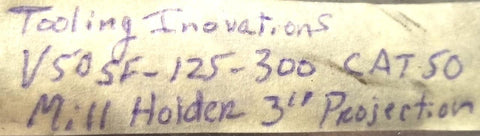 Tooling Inovations
V50SF-125-300 CAT50
Mill Holder 3" Projection